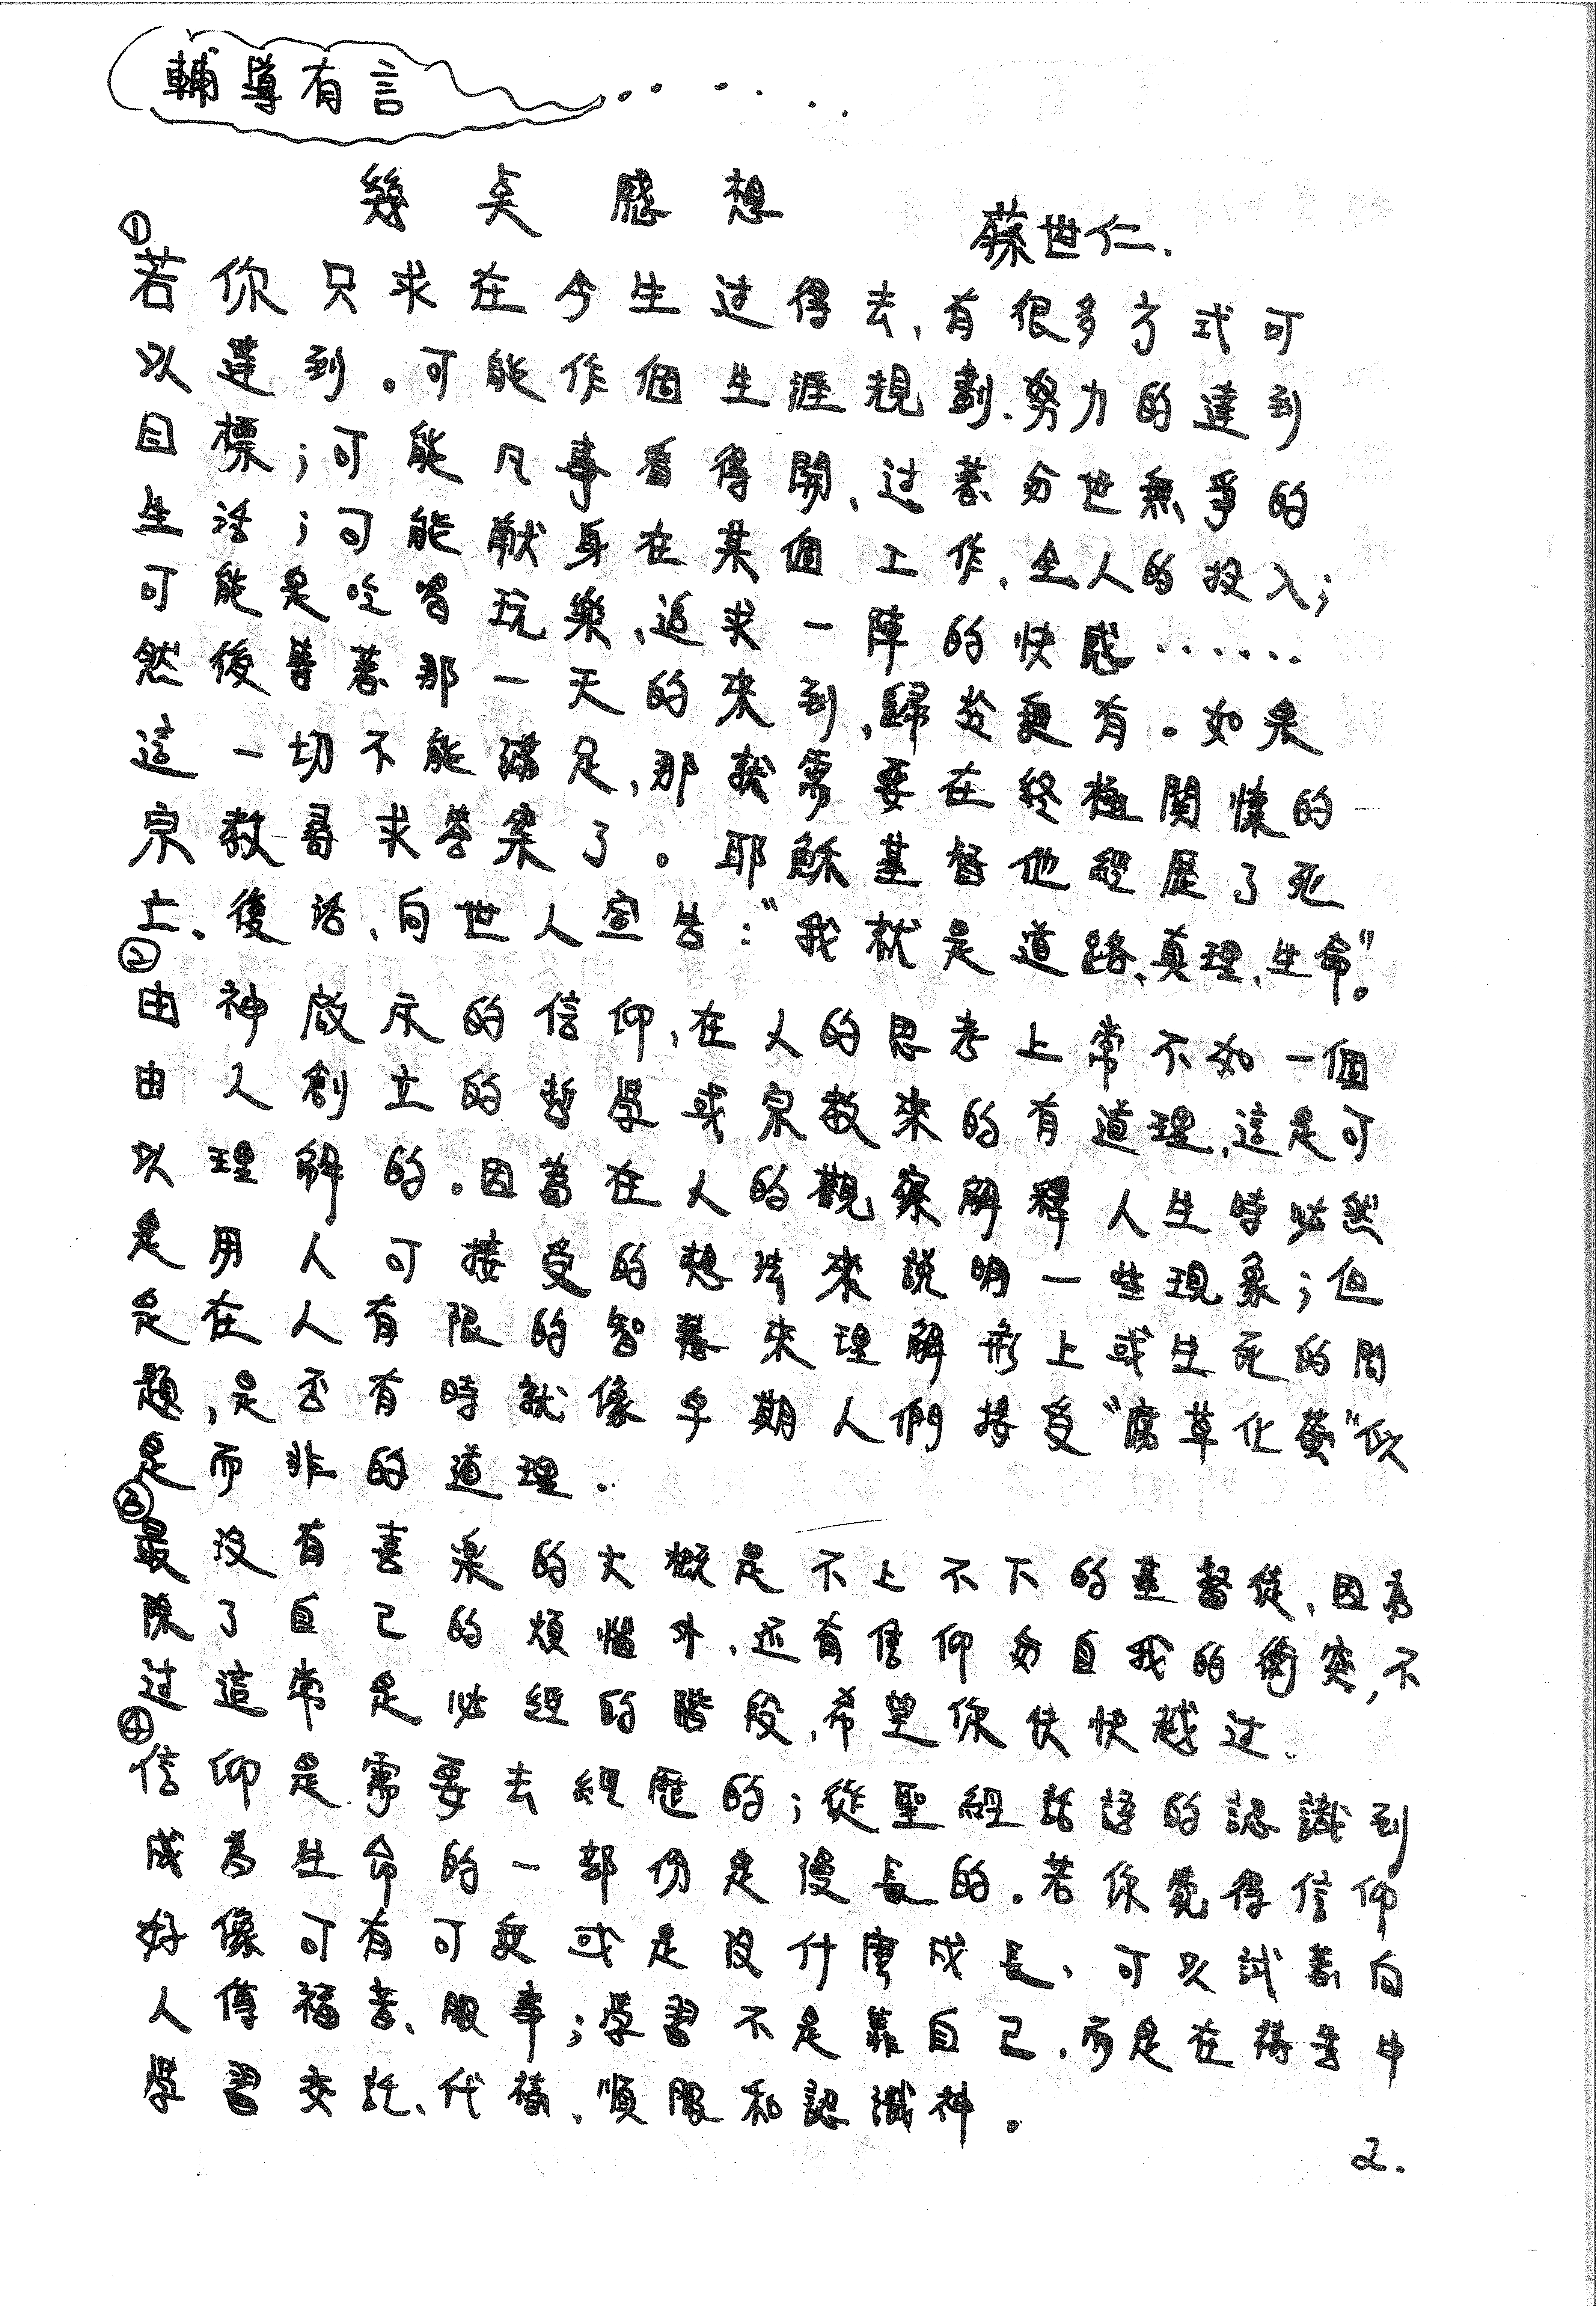 輔導有言
幾点感想
蘇世仁.
①
若你只求在今生过得去、有很多方式可
以達到。可能作個生涯規劃、努力的達到
目標;可能凡事看得開、过着与世無爭的
生活;可能献身在某個工作、全人的投入;
可能是吃喝玩樂、追求一陣的快感……
然後等着那一天的來到、歸於無有。如果
這一切不能滿足、那就需要在終極關懷的
宗教尋求答案了。耶穌基督他經歷了死
亡、復活、向世人宣告:"我就是道路、真理、生命"。
②
由神啟示的信仰、在人的思考上常不如一個
由人創立的哲學或宗教來的有道理、這是可
以理解的。因為在人的觀察解釋人生時必然
是用人可接受的想法來說明一些現象;但
是在人有限的智慧來理解形上或生死的問
題、是否有時就像早期人們接受"腐草化螢"似
是而非的道理.
③
最没有喜樂的大概是不上不下的基督徒、因為
除了自己的煩惱外、还有信仰与自我的衝突,不
过這常是必經的階段、希望你快快越过.
④
信仰是需要去經歷的;從聖經話語的認識到
成為生命的一部份是漫長的。若你覺得信仰
好像可有可無或是没什麼成長、可以試着向
人傳福音、服事;學習不是靠自己、而是在禱告中
學習交託、代禱、順服和認識神。
2.